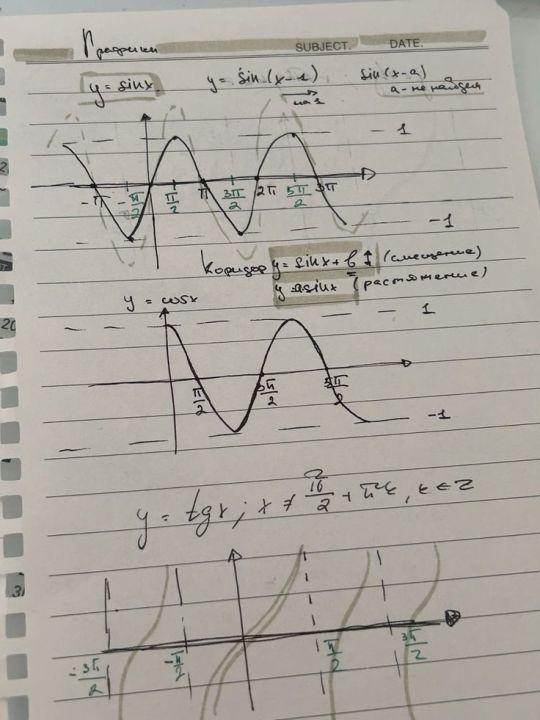 Графики
SUBJECT. DATE.
y = sinx. y = sin(x-1) sin(x-a)
на 1 a - не найдем
1
-π -π/2 π/2 π 3π/2 2π 5π/2 3π
-1
Коридор y = sinx + b ↕ (смещение)
y = asinx (растяжение)
y = cosx
1
π/2 3π/2 5π/2
-1
y = tgx; x ≠ π/2 + πk, k ∈ Z
-3π/2 -π/2 π/2 3π/2